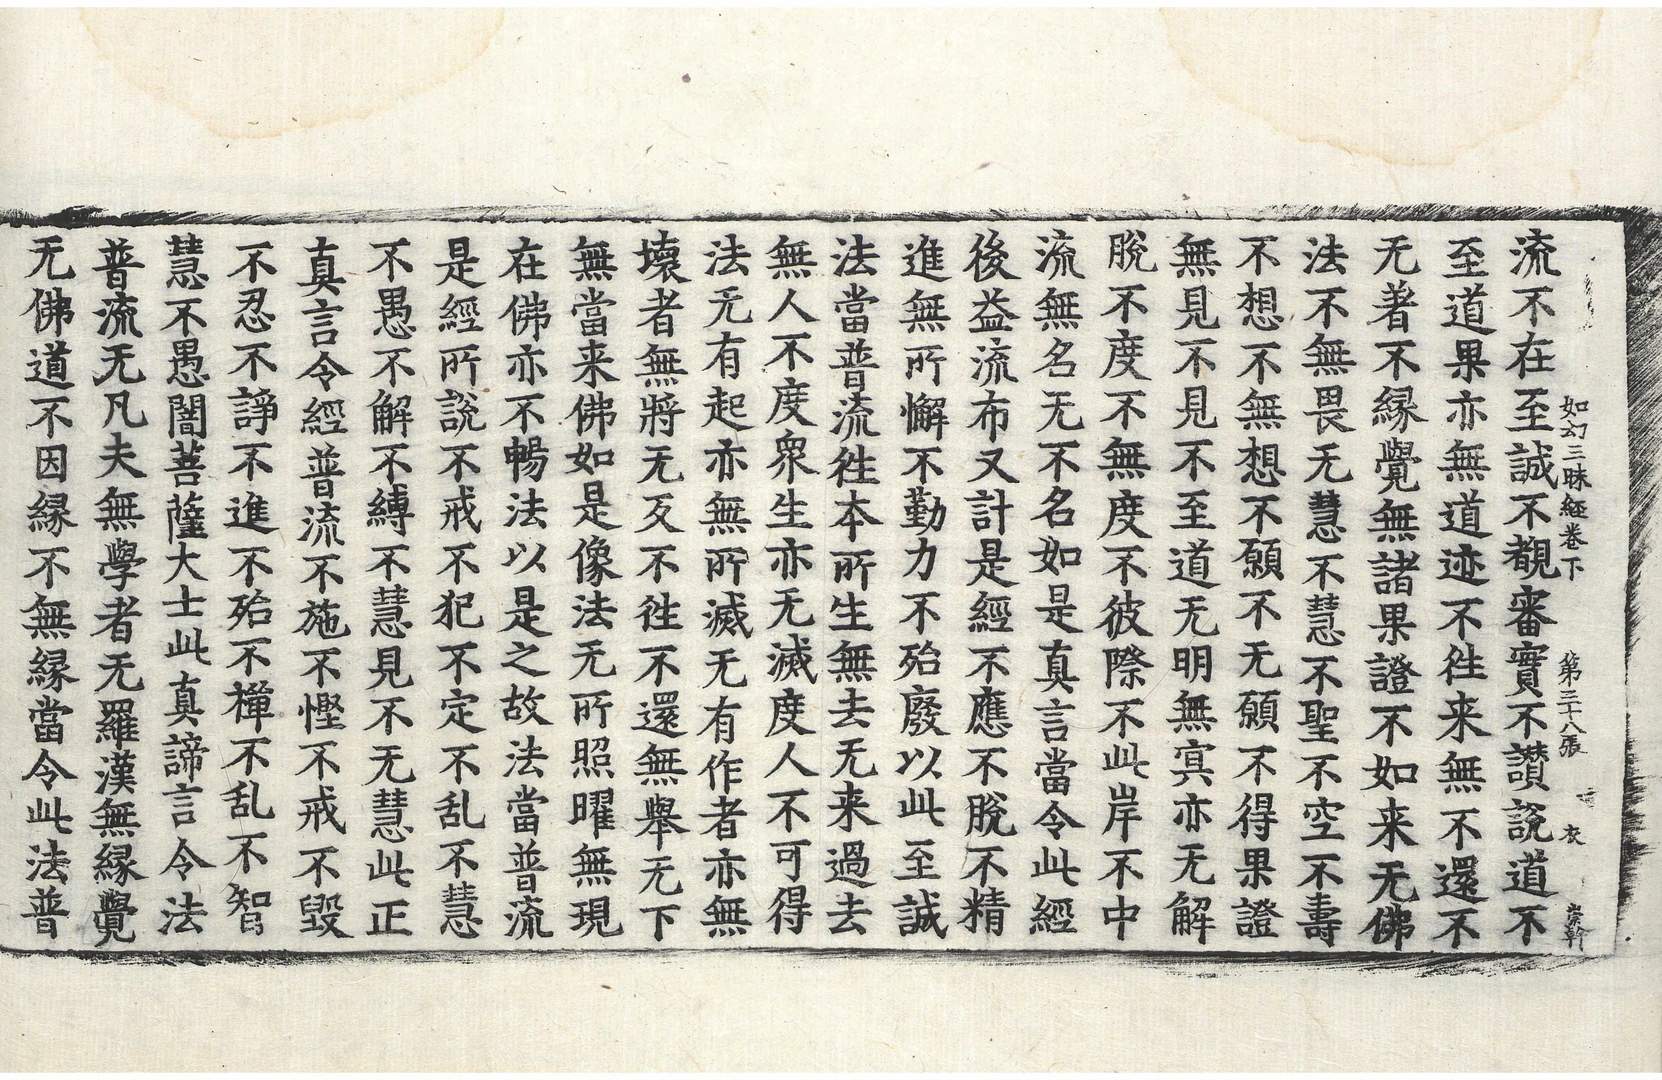 如幻三昧經卷下 第三十八張 衣 崇幹
流不在至誠不覩審實不讃說道不
至道果亦無道迹不徃来無不還不
无著不縁覺無諸果證不如来无佛
法不無畏无慧不慧不聖不空不壽
不想不無想不願不无願不得果證
無見不見不至道无明無㝠亦无解
脫不度不無度不彼際不此岸不中
流無名无不名如是真言當令此經
後益流布又計是經不應不脫不精
進無所懈不勤力不殆廢以此至誠
法當普流徃本所生無去无来過去
無人不度衆生亦无滅度人不可得
法无有起亦無所滅无有作者亦無
壞者無將无反不徃不還無舉无下
無當来佛如是像法无所照曜無現
在佛亦不暢法以是之故法當普流
是經所說不戒不犯不定不乱不慧
不愚不解不縛不慧見不无慧此正
真言令經普流不施不慳不戒不毀
不忍不諍不進不殆不禪不乱不智
慧不愚闇菩薩大士此真諦言令法
普流无凡夫無學者无羅漢無縁覺
无佛道不因縁不無縁當令此法普